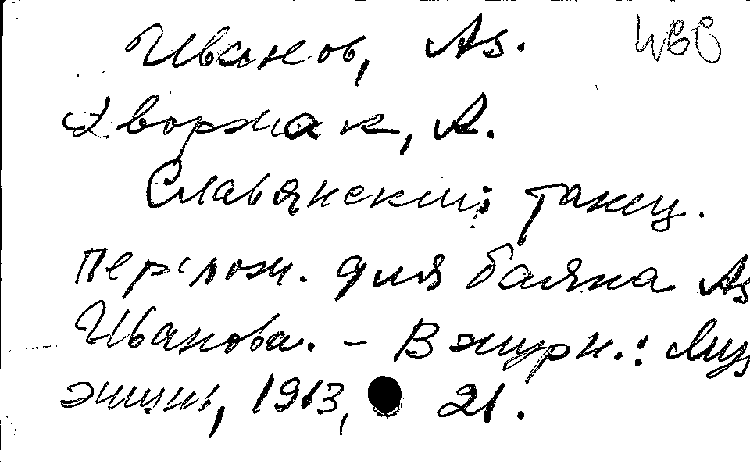 Иванов, Аз. ИВВ
Дворжак, А.
Славянский танец.
Перелож. для баяна Аз
Иванова. - В журн.: Муз
жизнь, 1913, 21.